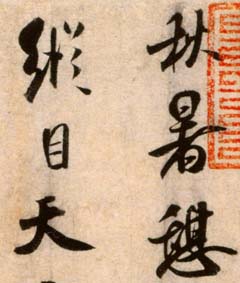 秋暑憩
縱目天